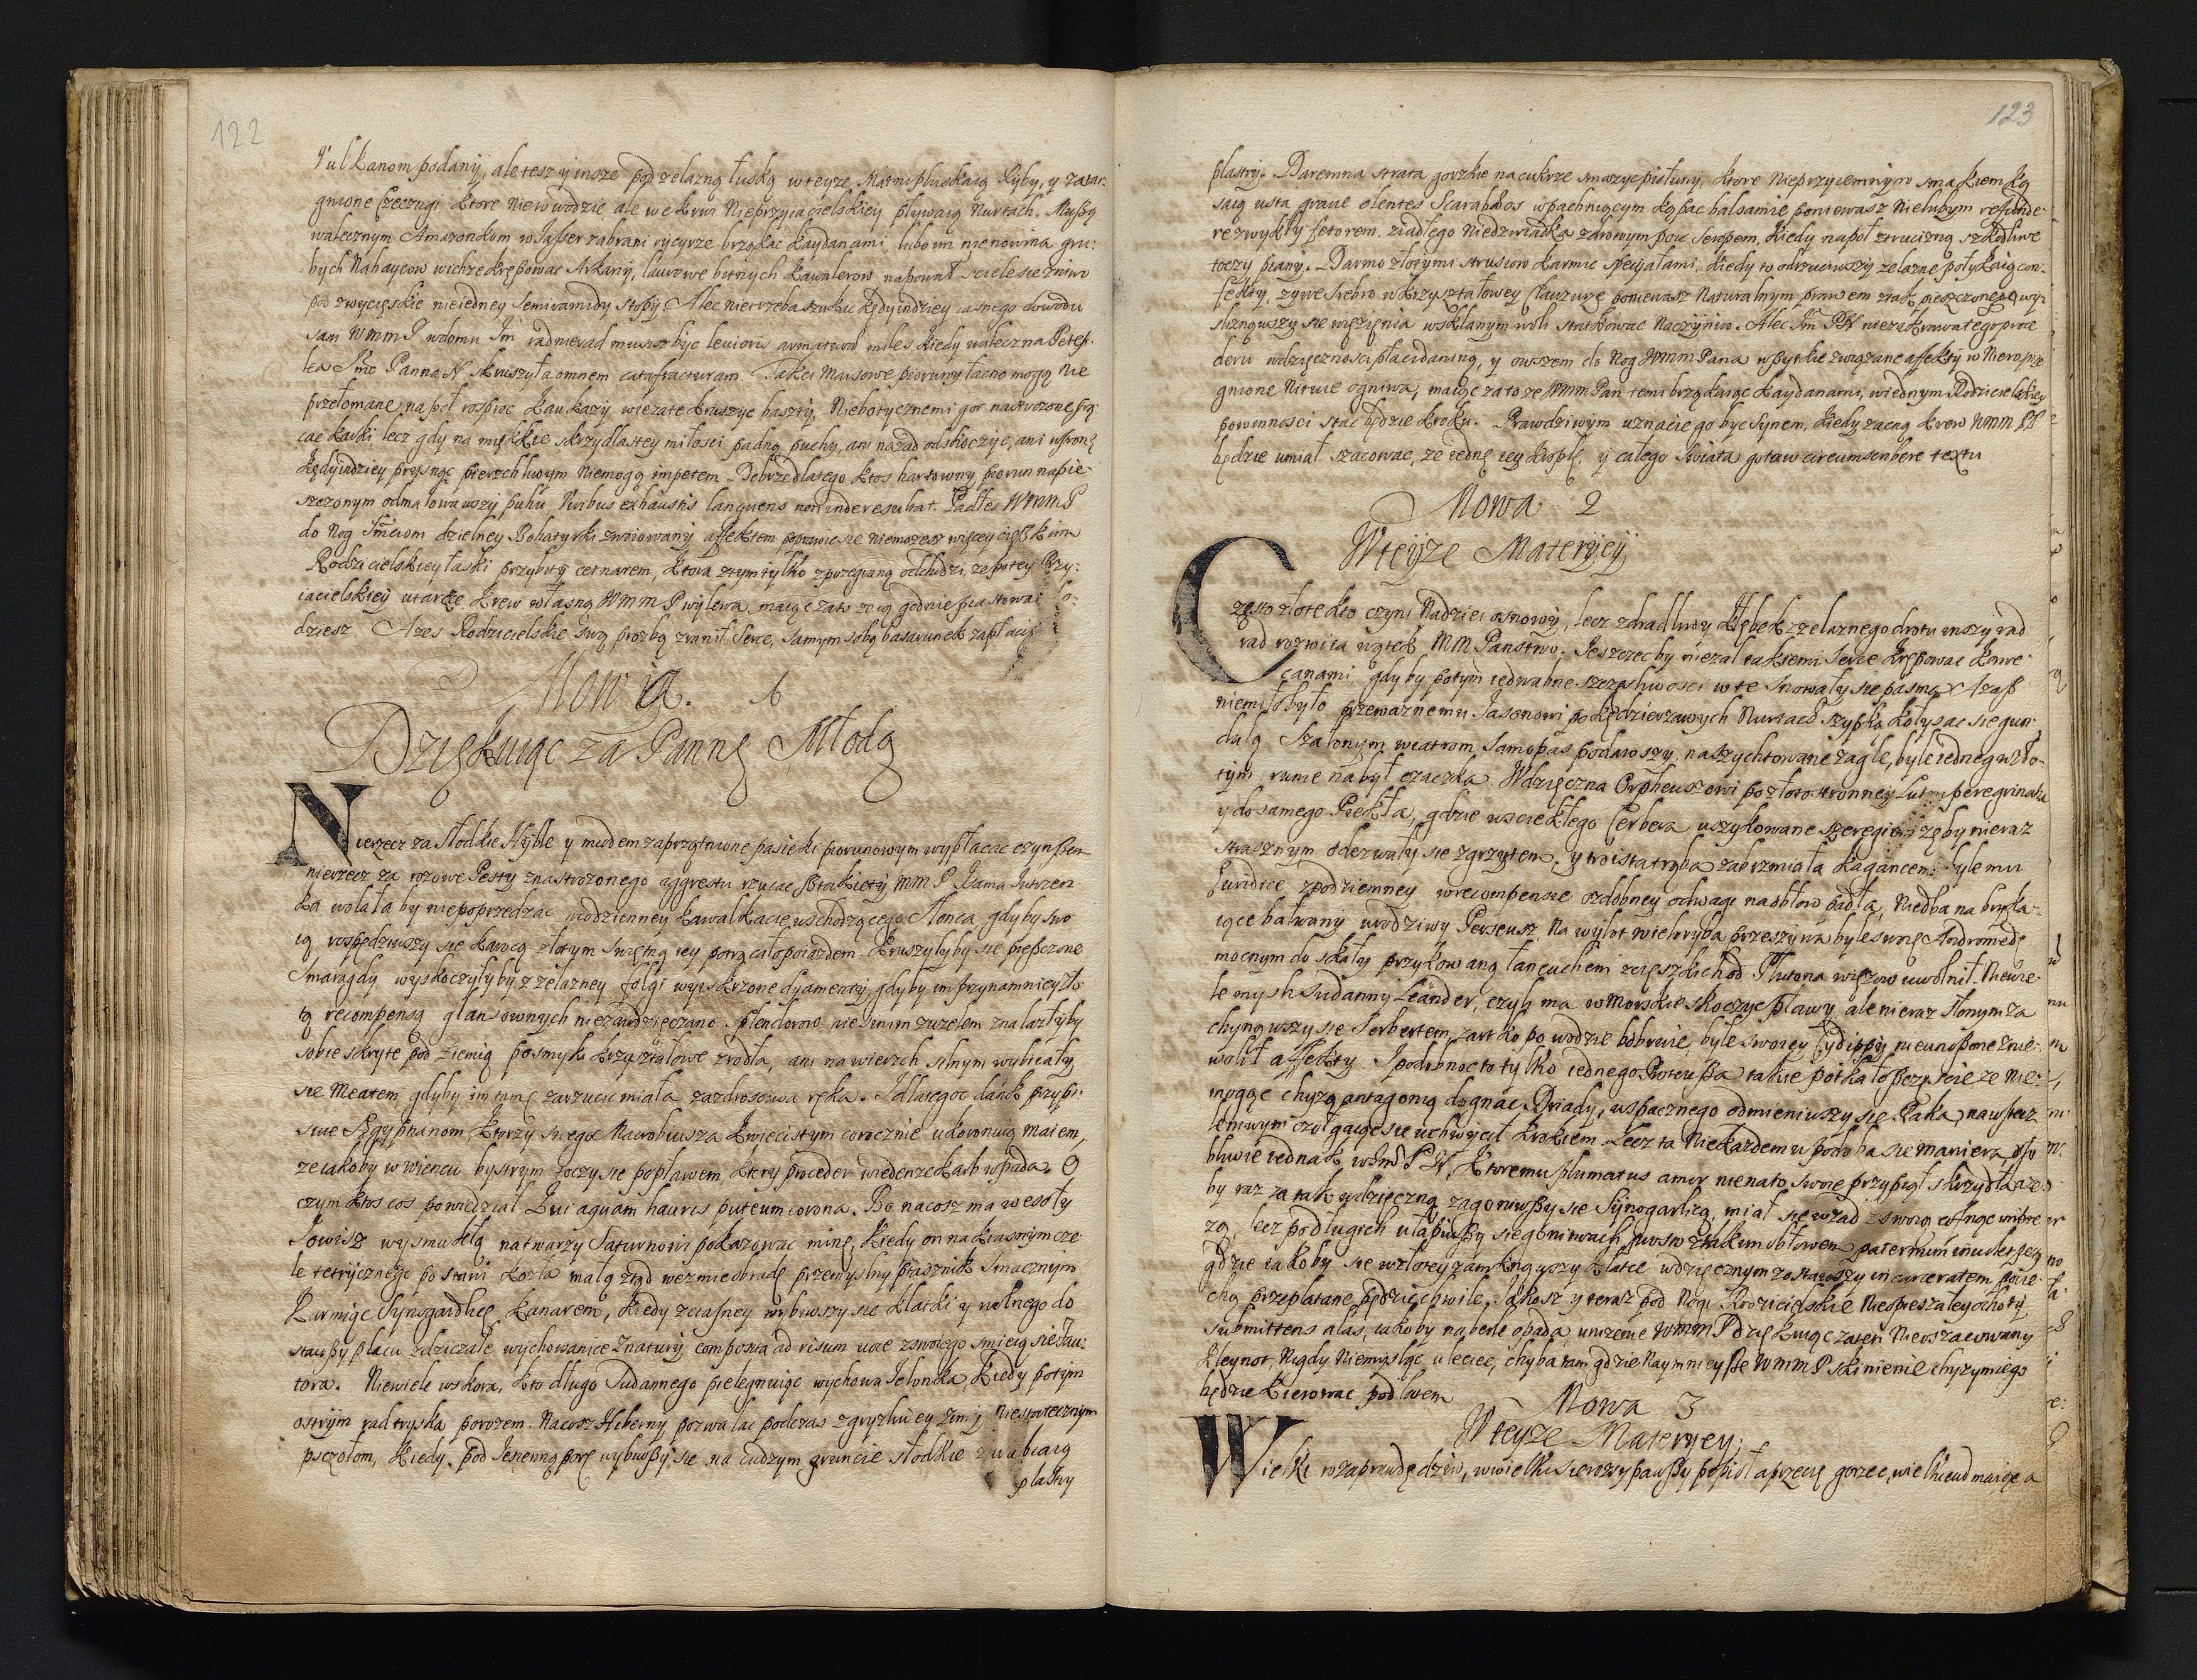 122
Vulkanom podanij, ale tesz y insze pod zelazną łuską w teyze Matni pluskaią Ryby, y zatar-
gnione Czeczugi ktore nie w wodzie ale we krwi Nieprzyiacielskiey pływaią Nurtach. Muszą
walecznym Amazonkom w Jasser zabrani rycyrze brząkac kaydanami, lubo im nienowina gru-
bych Nahaycow wichrze krępowac Arkany, laurowe bitnych kawalerow
pod zwycięskie nieiedney Semiramidy stopy. Alec nie trzeba szukac kędyindziey iasnego dowodu
sam WMMP w domu Im rad nierad musisz byc levioris armatura miles kiedy waleczna
Jmc Panna N skruszyła omnem catafracturam. Takci Marsowe pioruny łacno mogą nie
przełomane na poł rospiec Kaukazy wiezate kruszyc baszty, Niebotycznemi gor nastrozone
karki lecz gdy na miękkie skrzydlastey miłosci padną puchy, ani nazad odskoczyc, ani w stronę
kędyindziey prysnąc pierzchliwym niemogą impetem. Dobrze dlatego ktos hartowny piorun na pie-
szczonym odmalowawszy puhu, Viribus exhaustis languens non inde resultat. Padłes WMMP
do Nog Jmciom dzielney Bohatyrki zwoiowany affektem poprawic sie niemozesz więcey cięszkim
Rodzicielskiey łaski przybity cetnarem, ktora z tym tylko z pozegnaną odchodzi, ze po tey Przy-
iacielskiey utarcze krew własną WMMP wylewa, maiąc zato ze ią godnie piastowac
dziesz Azes Rodzicielskie swą prozbą zranił Serce, samym sobą basarunek zapłacisz
Mowa. 1
Dziękuiąc za Pannę Młodą
Nierzecz za słodkie Hyble y miodem zaprzątnione pasieki piorunowym wypłacac czynszem
nierzecz za rozowe Pesty znastrozonego aggrestu rzucac bukiety MMP. Sama Jutrzen
ka wolała by niepoprzedzac codzienney kawalkacie wschodzącego Słonca, gdyby swo
ią rospędziwszy sie karocą złotym Swiętną iey potrącało poiazdem. Kruszyłyby sie pieszczone
Smaragdy wyskoczyłyby z zelazney folgi wyiskrzone dyamenty, gdyby im przynamniey zło
tą recompensą glansownych niezawdzięczano splendorow
sobie skryte pod ziemią posmyki krzyształowe zrodła, ani na wierzch silnym wybicały
sie Meatem, gdyby im tamę zarzucic miała zazdrosciwa ręka. I dlategoc dank przypi-
suie Egyptianom, ktorzy swego Macrobiusza kwiecistym corocznie ukoronuią maiem,
ze iakoby w wiencu bystrym toczy sie popławem, ktery proceder wiedenze karb wpada. O
czym ktos cos powiedział Qui aquam hauris, puteum corona. Bo nacosz ma wesoły
Jowisz wysmukłą na twarzy Saturnowi pokazowac minę, kiedy on na krasnym cze
le tetrycznego postawi kozła małą ztąd wezmie obradę przemyslny ptasznik smacznym
karmiąc Synogardlicę kanarem, kiedy z ciasney wybiwszy sie klatki y wolnego do
stawszy placu zdziczałe wychowanice z natury composta ad risum voce z swoiego smieią sie fau-
tora. Niewiele wskora, kto długo Sudannego pielegnuiąc wychowa Jelonka, kiedy potym
ostrym rad tryska porozem. Nacosz Hiberny pozwalac podczas zgryzliwey zimy niestatecznym
pszczołom, kiedy pod Jesienną porę wybiwszy sie na cudzym gruncie słodkie zwabiaią
plastry
123
plastry. Daremna strata gorzkie na cukrze smazyc piołuny, ktore Nieprzyiemnym smakiem ką
saią usta graue olentes Scarabæos w pachniącym kąpac balsamie poniewasz Nielubym refunde-
re zwykły fetorem. ziadłego Niedzwiadka zdrowym poic Seropem, kiedy na poł z trucizną szkodliwe
toczy piany. Darmo złotymi strusiow karmic specyałami, kiedy to odrzuciwszy zelazne połykaią con-
fekty, zywe srebro w krzyształowey klauzurze poniewasz Naturalnym prawem z tak pieszczonego wy-
slizgnąwszy sie więzięnia w sklanym woli statkowac Naczyniu. Alec Jm PN niezakrawa tego proce
deru wdzięcznosci płacidaniną, y owszem do Nog WMMPana wszytkie związane affekty w Nierosprze
gnione Nituie ogniwa, maiąc za to ze WMMPan temi brząkaiąc kaydanami, w iednym Rodzicielskiey
powinnosci stac będzie kroku. Prawdziwym uznacie go byc Synem, kiedy zacną krew WMM PP
będzie umiał szacowac, ze iednę iey kroplę y całego Swiata gotow circumscribere textu
Mowa 2
Wteyze Materyey
Często złote kto czyni Nadziei osnowy, lecz zdradliwy kłębek z zelaznego drotu wszy rad
rad rozwiia wątek MM Panstwo. Jeszczec by nie zal takiemi Serce krępowac kawe-
canami, gdy by potym iedwabne szczęsliwosci wte snowały sie pasma. Azasz
niemiło było przewaznemu Jasonowi po kędzierzawych Nurtach szypką kołysac sie gun-
dulą Szalonym wiatrom samopas podawszy naszychtowane zagle, byle iednego w zło-
tym runie nabył czaczka. Wdzięczna Orpheuszowi po złotostronney Lutni peregrinatia
y do samego Piekła, gdzie wsciekłego Cerbera uszykowane szeregiem zęby nieraz
strasznym odezwały sie zgrzytem, y troista trąba zabrzmiała kagancem, byle mu
Euridice z podziemney w recompensie ozdobney odwagi na obłow padła, Niedba na bryka-
iące bałwany urodziwy Perseusz, Na wylot wieloryba przeszywa byle swoię Andromedę
mocnym do skały przykowaną łancuchem z cięszkich od Plutona więzow uwolnił. Niewie-
le mysli Sudanny Leander, czyli ma w Morskie skoczyc pławy, ale nieraz słonym za
chynąwszy sie Serbetem, zartko po wodzie bobruie, byle swoiey Cydippy nieuproszone znie-
wolił affekty. Podobnoc to tylko iednego Proteusza takie potkało szczęscie ze nie-
mogąc chyzą antagonią dognac Driady, w spacznego odmieniwszy się Raka, nawstecz
leniwym czołgaiąc sie uchwycił krokiem. Lecz ta Niekazdemu podoba sie maniera, oso
bliwie iednak w Jm P N. ktoremu plumatus amor nie na to swoie przypiął skrzydła ze
by raz za tak wdzięczną zagoniwszy sie Synogarlicą, miał się w zad z swoią cofnąc impre
zą, lecz po długich ułapiwszy sie gonitwach
gdzie iakoby sie w złotey zamknąwszy klatce wdzięcznym zostawszy in carceratem pocie-
chą przeplatane pędzic chwile. Jakosz y teraz pod Nogi Rodzicielskie
submittens alas, iakoby na berle opada, unizenie WMMP dziękuiąc za ten Nieoszacowany
kleynot, Nigdy Niemysląc uleciec, chyba tam gdzie Naymnieysze WMMP skinienie chyzym iego
będzie kierowac podlotem
Mowa 3
Wteyze Materyey;
Wielki wzaprawdę dziw, w wielki sie rozsypawszy popioł a przecię gorzec, wielki cud maiąc a